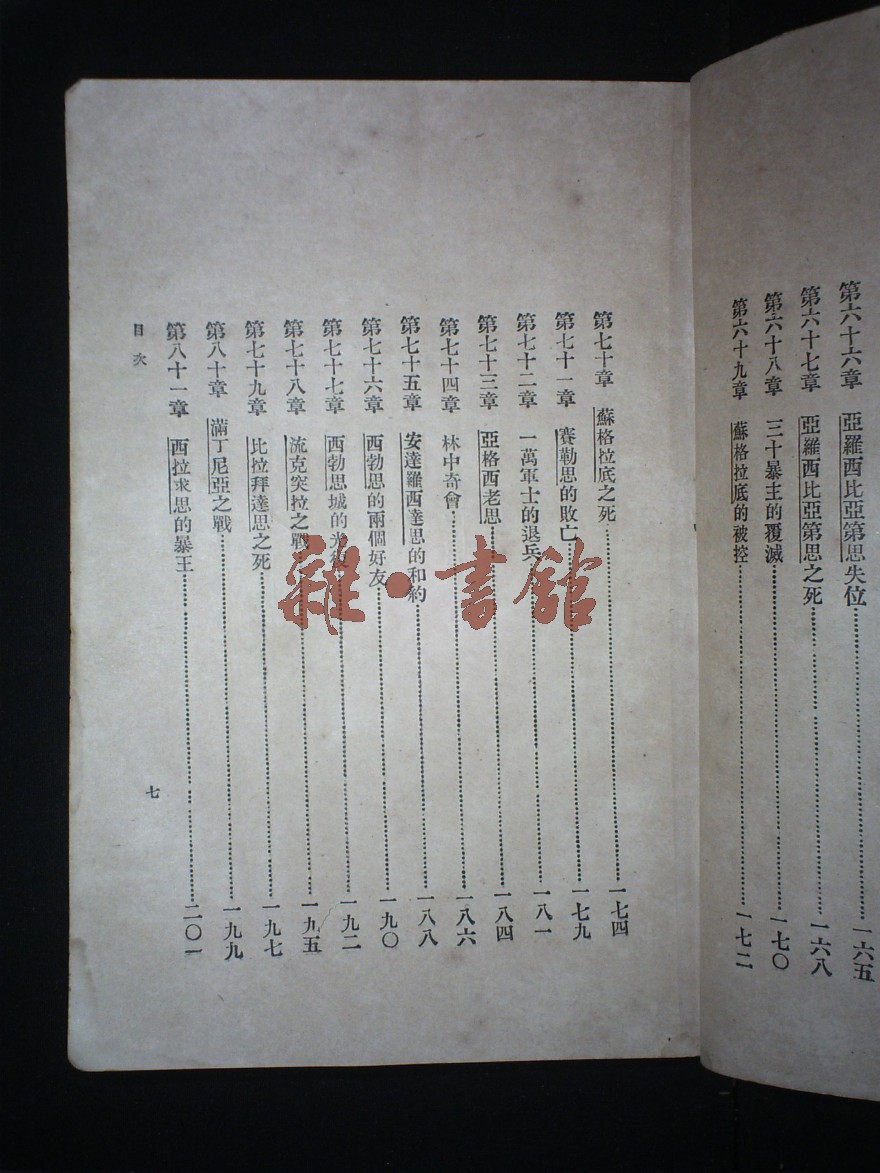 第六十六章 亞羅西比亞第思失位 一六五
第六十七章 亞羅西比亞第思之死 一六八
第六十八章 三十暴主的覆滅 一七〇
第六十九章 蘇格拉底的被控 一七二
第七十章 蘇格拉底之死 一七四
第七十一章 賽勒思的敗亡 一七九
第七十二章 一萬軍士的退兵 一八一
第七十三章 亞格西老思 一八四
第七十四章 林中奇會 一八六
第七十五章 安達羅西達思的和約 一八八
第七十六章 西勃思的兩個好友 一九〇
第七十七章 西勃思城的光復 一九二
第七十八章 流克突拉之戰 一九五
第七十九章 比拉拜達思之死 一九七
第八十章 滿丁尼亞之戰 一九九
第八十一章 西拉求思的暴王 二〇一
目次
七
雜·書館